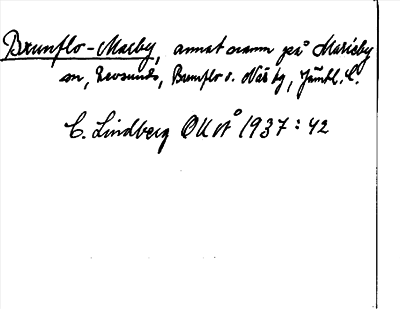 Brunflo-Macby, annat namn på Marieby
sn, Revsunds, Brunflo o. Näs tg, Jämtl. l.
C. Lindberg OUÅ 1937:42